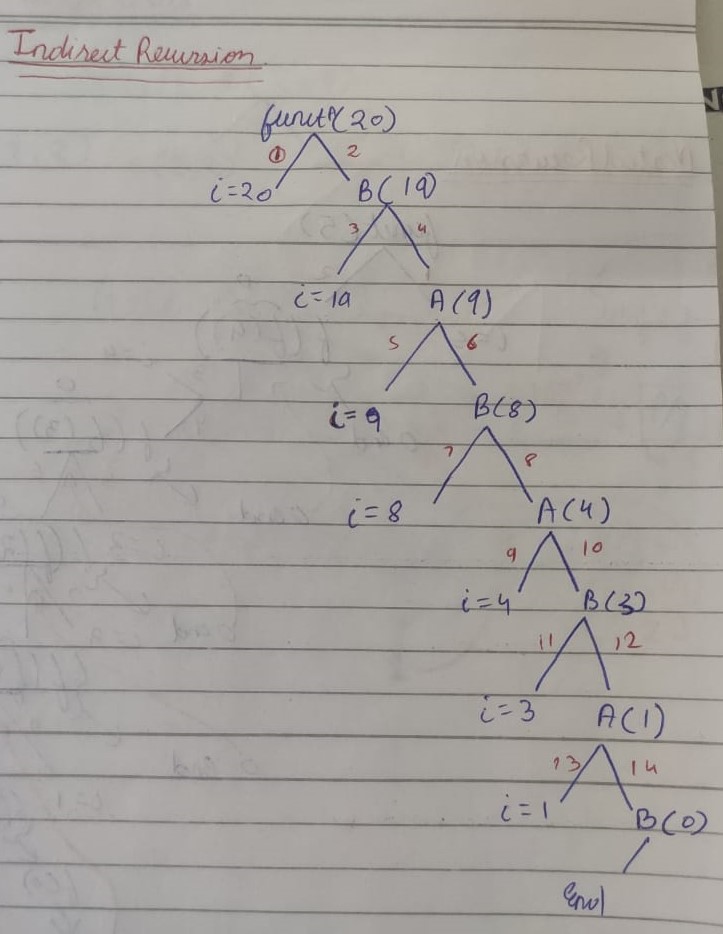 Indirect Recursion
funcA(20)
① 2
i=20 B(19)
3 4
i=19 A(9)
5 6
i=9 B(8)
7 8
i=8 A(4)
9 10
i=4 B(3)
11 12
i=3 A(1)
13 14
i=1 B(0)
End